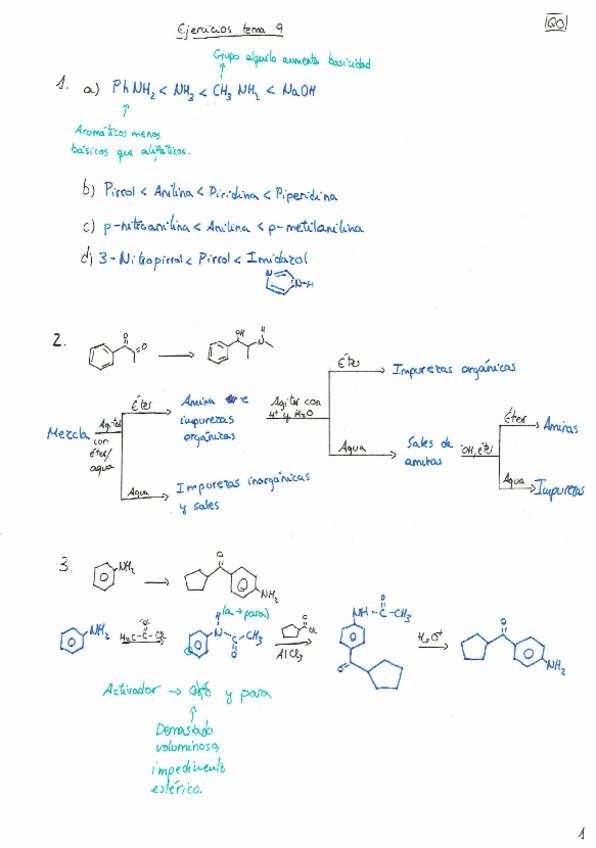 Ejercicios tema 9
QO
Grupo alquilo aumenta basicidad
1. a) PhNH2 < NH3 < CH3NH2 < NaOH
Aromáticos menos
básicos que alifáticos.
b) Pirrol < Anilina < Piridina < Piperidina
c) p-nitroanilina < Anilina < p-metilanilina
d) 3-Nitropirrol < Pirrol < Imidazol
N
N-H
2.
O
O
OH
H
N
Mezcla
Agitar
con
éter/
agua
Éter
Amina e
impurezas
orgánicas
Agua
Impurezas inorgánicas
y sales
Agitar con
H+ y H2O
Éter
Impurezas orgánicas
Agua
Sales de
aminas
-OH, éter
Éter
Aminas
Agua
Impurezas
3.
NH2
O
NH2
NH2
H3C-C-Cl
O
H
(o → para)
N
C
CH3
O
O
Cl
AlCl3
NH-C-CH3
O
O
H3O+
O
NH2
Activador → orto y para
Demasiado
voluminoso,
impedimento
estérico.
1